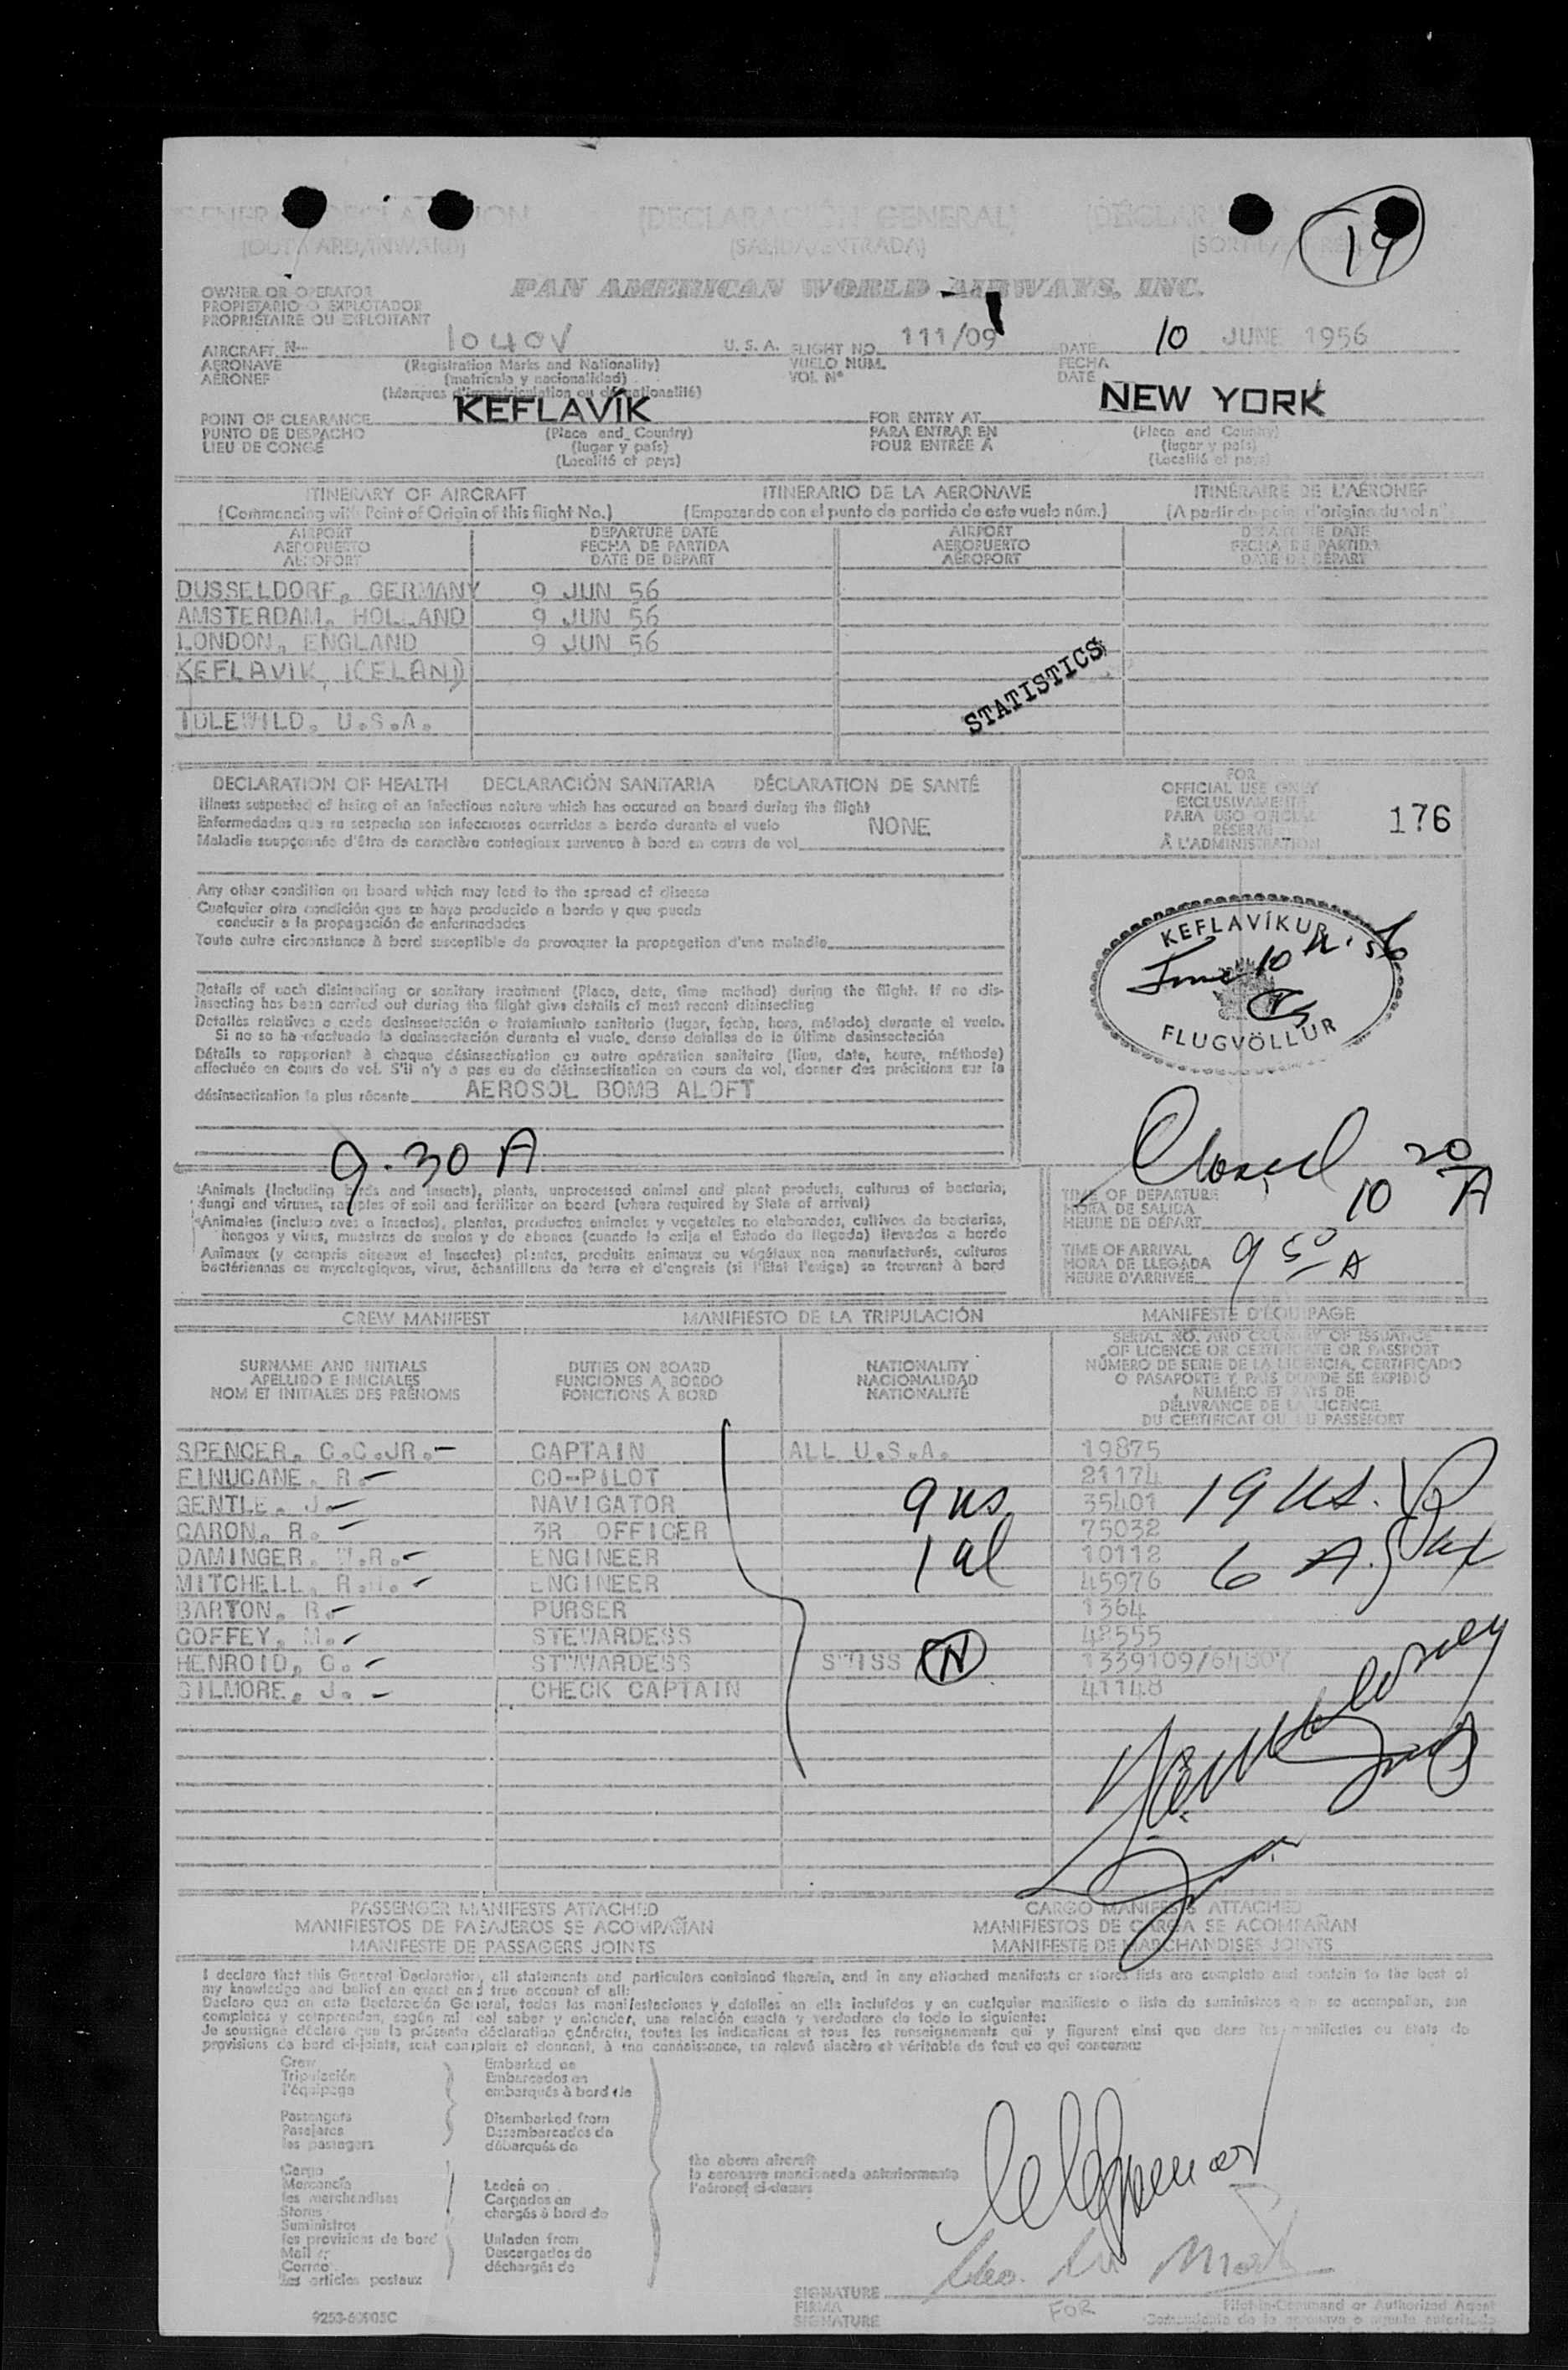 GENERAL DECLARATION (DECLARACIÓN GENERAL)
(OUTWARD/INWARD) (SALIDA/ENTRADA)
19
OWNER OR OPERATOR
PROPIETARIO O EXPLOTADOR
PROPRIÉTAIRE OU EXPLOITANT
PAN AMERICAN WORLD AIRWAYS, INC.
AIRCRAFT N- 1040V U. S. A. FLIGHT NO. 111/09 DATE 10 JUNE 1956
AERONAVE (Registration Marks and Nationality) VUELO NUM. FECHA
AÉRONEF (matrícula y nacionalidad) VOL Nº DATE
(Marques d'immatriculation ou de nationalité)
POINT OF CLEARANCE KEFLAVÍK FOR ENTRY AT NEW YORK
PUNTO DE DESPACHO (Place and Country) PARA ENTRAR EN (Place and Country)
LIEU DE CONGÉ (lugar y país) POUR ENTRÉE À (lugar y país)
(Localité et pays) (Localité et pays)
ITINERARY OF AIRCRAFT ITINERARIO DE LA AERONAVE ITINÉRAIRE DE L'AÉRONEF
(Commencing with Point of Origin of this flight No.) (Empezando con el punto de partida de este vuelo núm.) (A partir du point d'origine du vol nº)
AIRPORT DEPARTURE DATE AIRPORT DEPARTURE DATE
AEROPUERTO FECHA DE PARTIDA AEROPUERTO FECHA DE PARTIDA
AÉROPORT DATE DE DÉPART AÉROPORT DATE DE DÉPART
DUSSELDORF, GERMANY 9 JUN 56
AMSTERDAM, HOLLAND 9 JUN 56
LONDON, ENGLAND 9 JUN 56
KEFLAVIK, ICELAND
STATISTICS
IDLEWILD, U.S.A.
DECLARATION OF HEALTH DECLARACIÓN SANITARIA DÉCLARATION DE SANTÉ
Illness suspected of being of an infectious nature which has occured on board during the flight
Enfermedades que se sospecha son infecciosas ocurridas a bordo durante el vuelo NONE
Maladie soupçonnée d'être de caractère contagieux survenue à bord en cours de vol
FOR
OFFICIAL USE ONLY
EXCLUSIVAMENTE
PARA USO OFICIAL
RÉSERVÉ
À L'ADMINISTRATION
176
Any other condition on board which may lead to the spread of disease
Cualquier otra condición que se haya producido a bordo y que pueda
conducir a la propagación de enfermedades
Toute autre circonstance à bord susceptible de provoquer la propagation d'une maladie
KEFLAVÍKUR
June 10 th. 56
FLUGVÖLLUR
Details of each disinsecting or sanitary treatment (Place, date, time method) during the flight. If no dis-
insecting has been carried out during the flight give details of most recent disinsecting
Detalles relativos a cada desinsectación o tratamiento sanitario (lugar, fecha, hora, método) durante el vuelo.
Si no se ha efectuado la desinsectación durante el vuelo, dense detalles de la última desinsectación
Détails se rapportant à chaque désinsectisation ou autre opération sanitaire (lieu, date, heure, méthode)
effectuée en cours de vol. S'il n'y a pas eu de désinsectisation en cours de vol, donner des précisions sur la
désinsectisation la plus récente AEROSOL BOMB ALOFT
9.30 A
Closed 10 20 A
Animals (Including birds and insects), plants, unprocessed animal and plant products, cultures of bacteria,
fungi and viruses, samples of soil and fertilizer on board (where required by State of arrival)
Animales (incluso aves o insectos), plantas, productos animales y vegetales no elaborados, cultivos de bacterias,
hongos y virus, muestras de suelos y de abonos (cuando lo exija el Estado de llegada) llevados a bordo
Animaux (y compris oiseaux et insectes) plantes, produits animaux ou végétaux non manufacturés, cultures
bactériennes ou mycologiques, virus, échantillons de terre et d'engrais (si l'Etat l'exige) se trouvant à bord
TIME OF DEPARTURE
HORA DE SALIDA
HEURE DE DÉPART
TIME OF ARRIVAL
HORA DE LLEGADA 9 50 A
HEURE D'ARRIVÉE
CREW MANIFEST MANIFIESTO DE LA TRIPULACIÓN MANIFESTE D'ÉQUIPAGE
SURNAME AND INITIALS DUTIES ON BOARD NATIONALITY
APELLIDO E INICIALES FUNCIONES A BORDO NACIONALIDAD
NOM ET INITIALES DES PRÉNOMS FONCTIONS À BORD NATIONALITÉ
SERIAL NO. AND COUNTRY OF ISSUANCE
OF LICENCE OR CERTIFICATE OR PASSPORT
NÚMERO DE SERIE DE LA LICENCIA, CERTIFICADO
O PASAPORTE Y PAÍS DONDE SE EXPIDIÓ
NUMÉRO ET PAYS DE
DÉLIVRANCE DE LA LICENCE
DU CERTIFICAT OU DU PASSEPORT
SPENCER, C.C.JR. CAPTAIN ALL U.S.A. 19875
FINUCANE, R. CO-PILOT 21174
GENTLE, J. NAVIGATOR 9 us 35401 19 US.
CARON, R. 3R OFFICER 75032
DAMINGER, W.R. ENGINEER 1 al 10112 6 A.
MITCHELL, R. ENGINEER 45976
BARTON, R. PURSER 1364
COFFEY, M. STEWARDESS 48555
HENROID, G. STEWARDESS SWISS N 1339109/
GILMORE, J. CHECK CAPTAIN 41148
PASSENGER MANIFESTS ATTACHED CARGO MANIFESTS ATTACHED
MANIFIESTOS DE PASAJEROS SE ACOMPAÑAN MANIFIESTOS DE CARGA SE ACOMPAÑAN
MANIFESTE DE PASSAGERS JOINTS MANIFESTE DE MARCHANDISES JOINTS
I declare that this General Declaration, all statements and particulars contained therein, and in any attached manifests or stores lists are complete and contain to the best of
my knowledge and belief an exact and true account of all:
Declaro que en esta Declaración General, todas las manifestaciones y detalles en ella incluídos y en cualquier manifiesto o lista de suministros que se acompañan, son
completos y comprenden, según mi leal saber y entender, una relación exacta y verdadera de todo lo siguiente:
Je soussigné déclare que la présente déclaration générale, toutes les indications et tous les renseignements qui y figurent ainsi que dans les manifestes ou états de
provisions de bord ci-joints, sont complets et donnent, à ma connaissance, un relevé sincère et véritable de tout ce qui concerne:
Crew Embarked on
Tripulación Embarcados en
l'équipage embarqués à bord de
Passengers Disembarked from
Pasajeros Desembarcados de
les passagers débarqués de
the above aircraft
la aeronave mencionada anteriormente
l'aéronef ci-dessus
Cargo
Mercancía Laden on
les marchandises Cargados en
Stores chargés à bord de
Suministros
les provisions de bord Unladen from
Mail Descargados de
Correo déchargés de
les articles postaux
SIGNATURE
FIRMA FOR Pilot-in-Command or Authorized Agent
SIGNATURE Comandante de la aeronave o agente autorizado